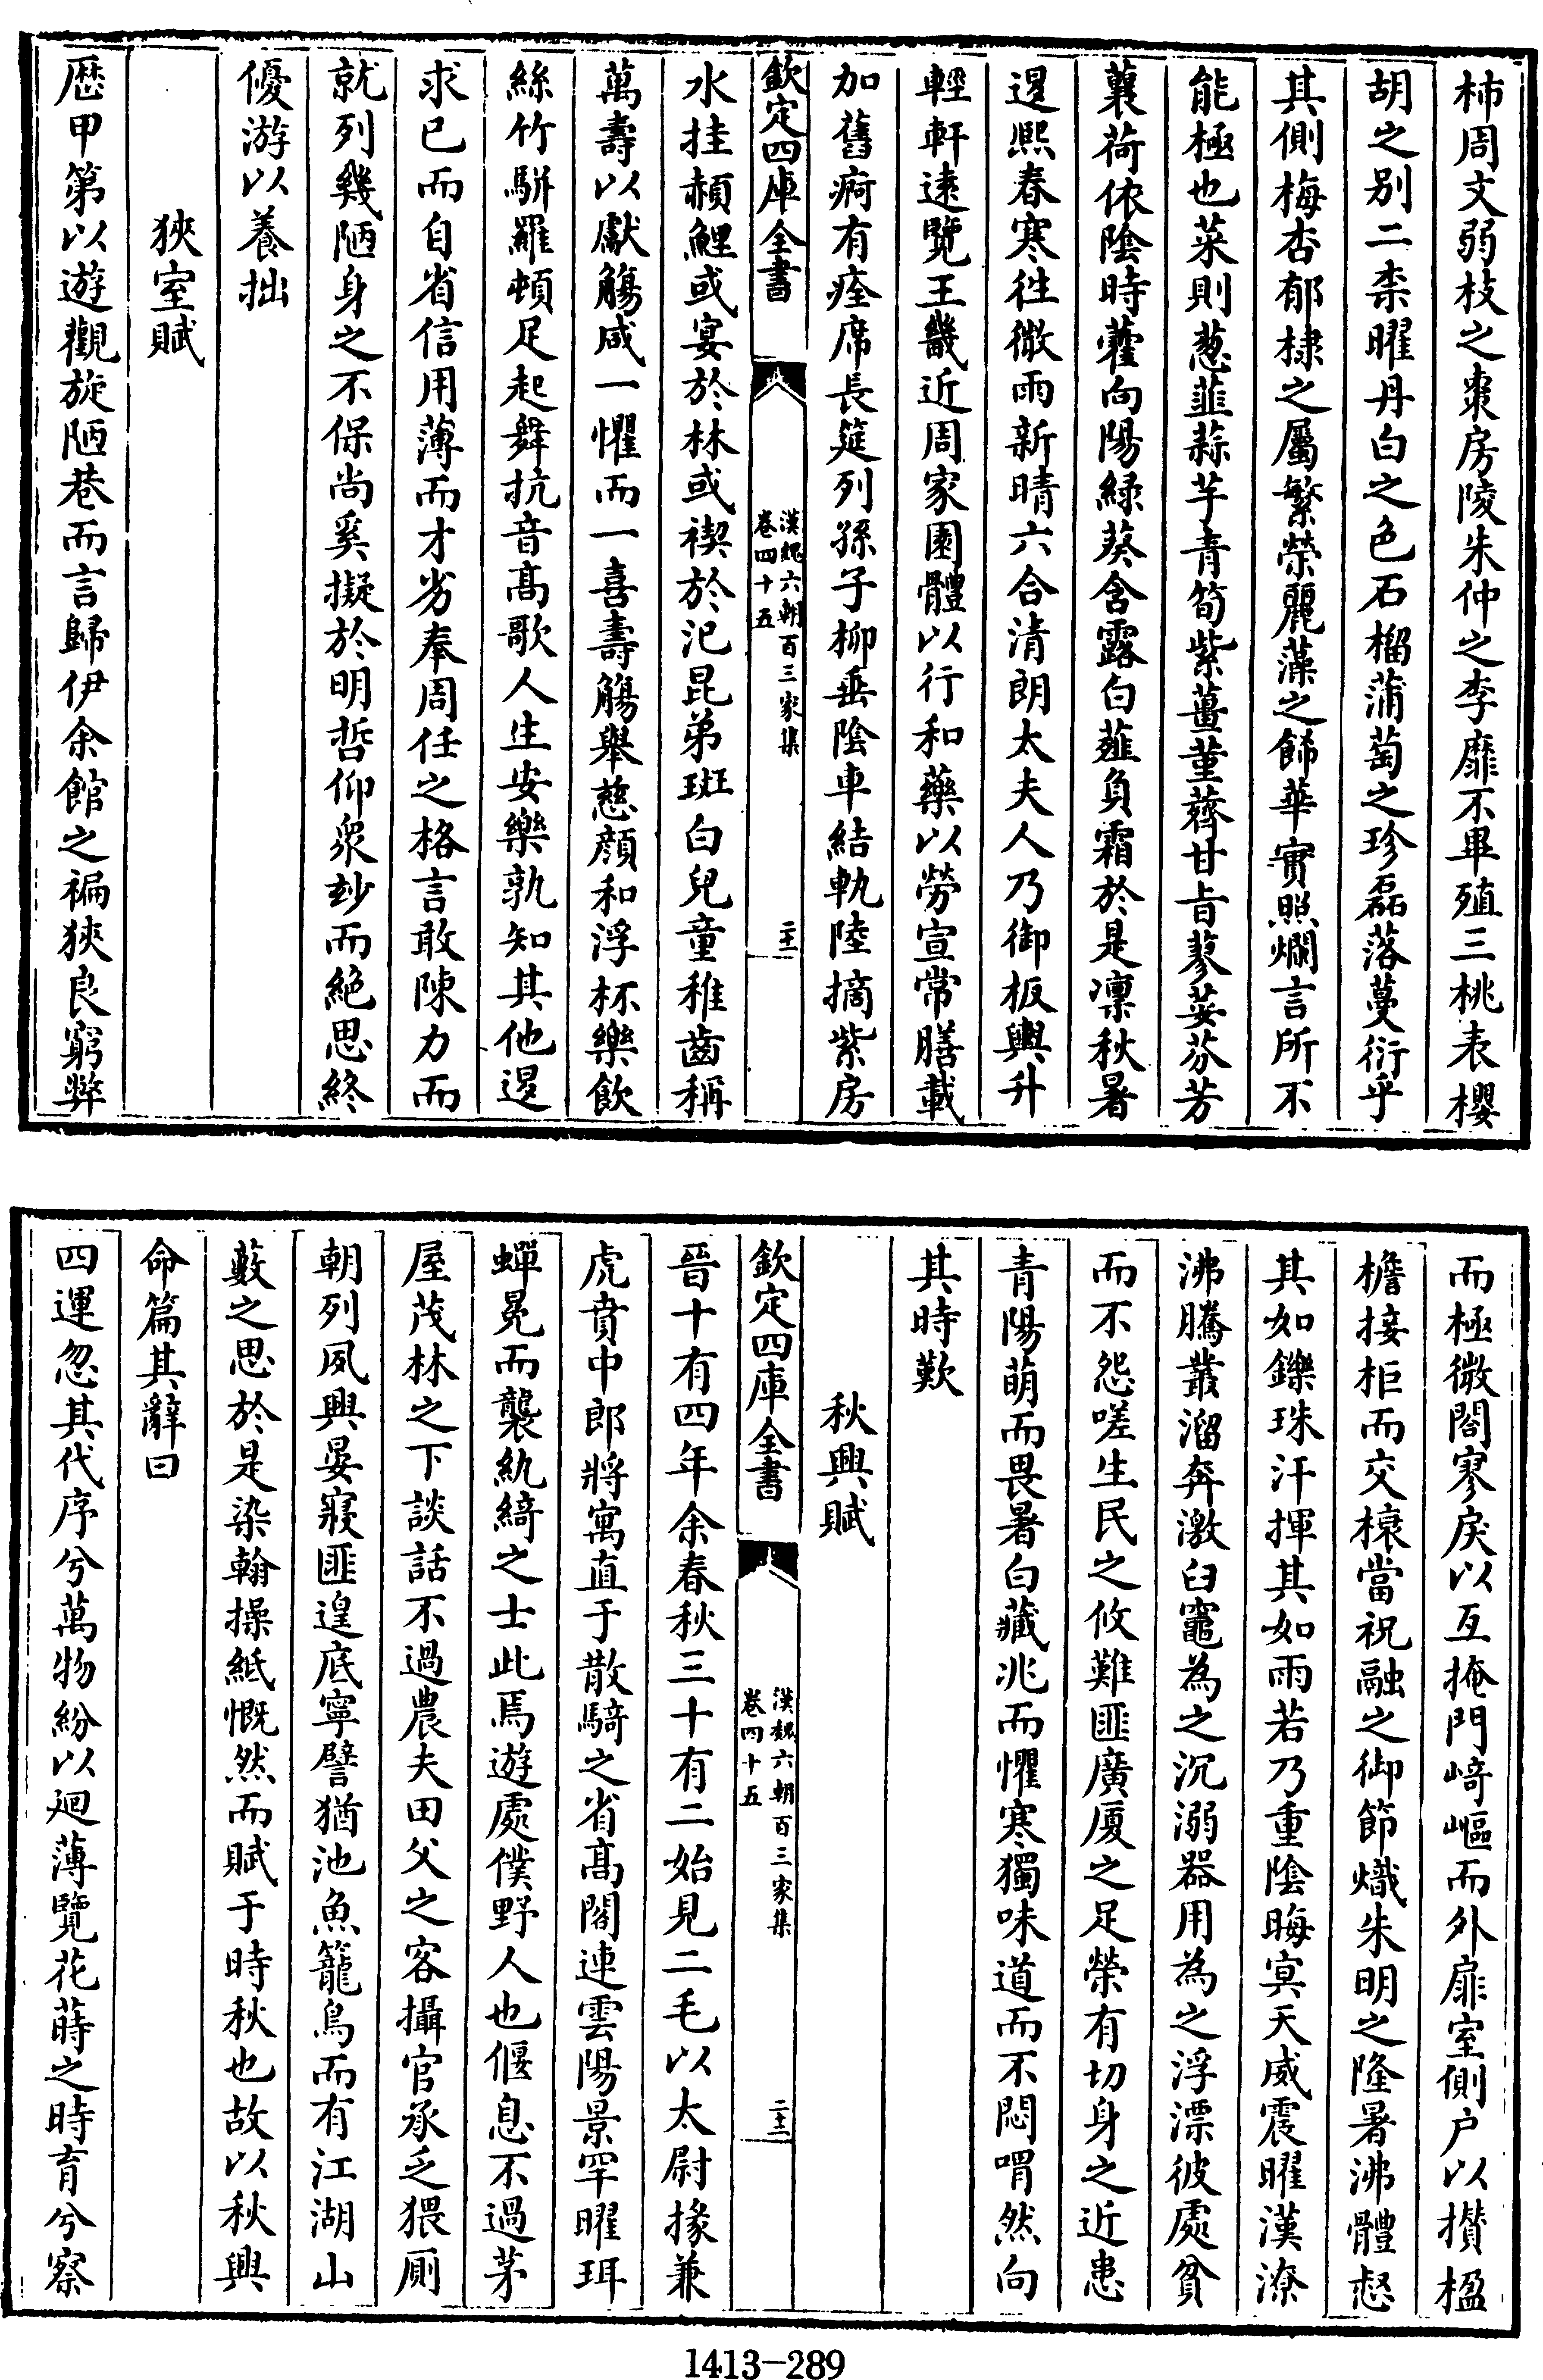 柿周文弱枝之棗房陵朱仲之李靡不畢殖三桃表櫻
胡之别二柰曜丹白之色石榴蒲萄之珍磊落蔓衍乎
其側梅杏郁棣之屬繁榮麗藻之餙華實照爛言所不
能極也菜則葱韭蒜芋青筍紫薑菫薺甘㫖蓼荽芬芳
蘘荷依陰時藿向陽緑葵含露白薤負霜於是凛秋暑
退熈春寒徃微雨新晴六合清朗太夫人乃御板輿升
輕軒逺覽王畿近周家園體以行和藥以勞宣常膳載
加舊痾有痊席長筵列孫子柳垂陰車結軌陸摘紫房
欽定四庫全書
漢魏六朝百三家集
卷四十五
二十一
水挂赬鯉或宴於林或禊於汜昆弟斑白兒童稚齒稱
萬壽以獻觴咸一懼而一喜壽觴舉慈顔和浮杯樂飲
絲竹駢羅頓足起舞抗音髙歌人生安樂孰知其他退
求已而自省信用薄而才劣奉周任之格言敢陳力而
就列幾陋身之不保尚奚擬於明哲仰衆玅而絶思終
優游以養拙
狹室賦
歴甲第以遊觀旋陋巷而言歸伊余館之褊狹良窮弊
而極微閣寥戾以互掩門﨑嶇而外扉室側户以攅楹
檐接柜而交榱當祝融之御節熾朱明之隆暑沸體惄
其如鑠珠汗揮其如雨若乃重陰晦㝠天威震曜漢潦
沸騰叢溜奔激臼竈為之沉溺器用為之浮漂彼處貧
而不怨嗟生民之攸難匪廣厦之足榮有切身之近患
青陽萌而畏暑白藏兆而懼寒獨味道而不悶喟然向
其時歎
秋興賦
欽定四庫全書
漢魏六朝百三家集
卷四十五
二十二
晉十有四年余春秋三十有二始見二毛以太尉掾兼
虎賁中郎將寓直于散騎之省髙閣連雲陽景罕曜珥
蟬冕而襲紈綺之士此焉遊處僕野人也偃息不過茅
屋茂林之下談話不過農夫田父之客攝官承乏猥厠
朝列夙興晏寢匪遑底寧譬猶池魚籠鳥而有江湖山
藪之思於是染翰操紙慨然而賦于時秋也故以秋興
命篇其辭曰
四運忽其代序兮萬物紛以廻薄覽花蒔之時育兮察
1413—289